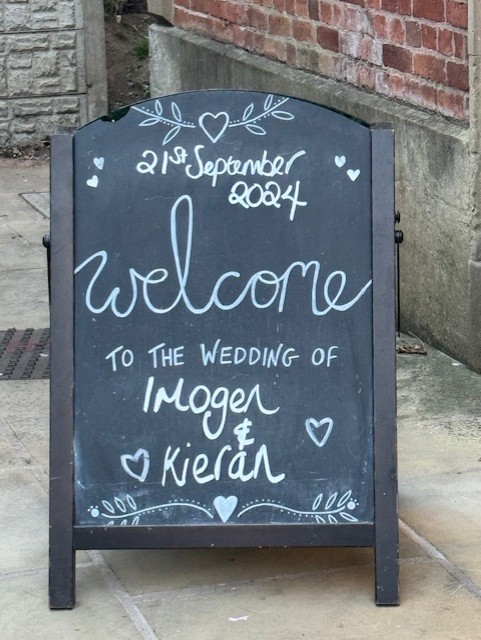 21st September
2024
welcome
TO THE WEDDING OF
Imogen
&
Kieran